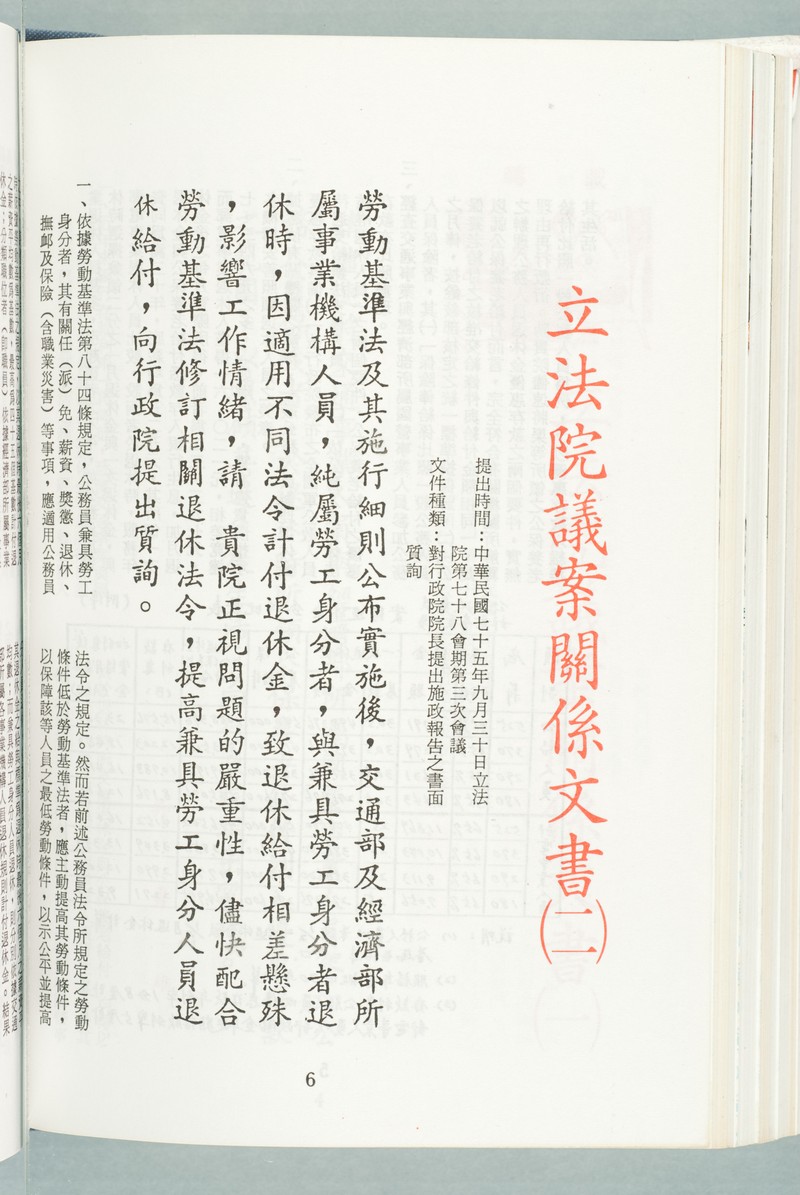 立法院議案關係文書(二)
提出時間：中華民國七十五年九月三十日立法
院第七十八會期第三次會議
文件種類：對行政院院長提出施政報告之書面
質詢
勞動基準法及其施行細則公布實施後，交通部及經濟部所
屬事業機構人員，純屬勞工身分者，與兼具勞工身分者退
休時，因適用不同法令計付退休金，致退休給付相差懸殊
，影響工作情緒，請　貴院正視問題的嚴重性，儘快配合
勞動基準法修訂相關退休法令，提高兼具勞工身分人員退
休給付，向行政院提出質詢。
一、依據勞動基準法第八十四條規定，公務員兼具勞工
身分者，其有關任（派）免、薪資、獎懲、退休、
撫卹及保險（含職業災害）等事項，應適用公務員
法令之規定。然而若前述公務員法令所規定之勞動
條件低於勞動基準法者，應主動提高其勞動條件，
以保障該等人員之最低勞動條件，以示公平並提高
6